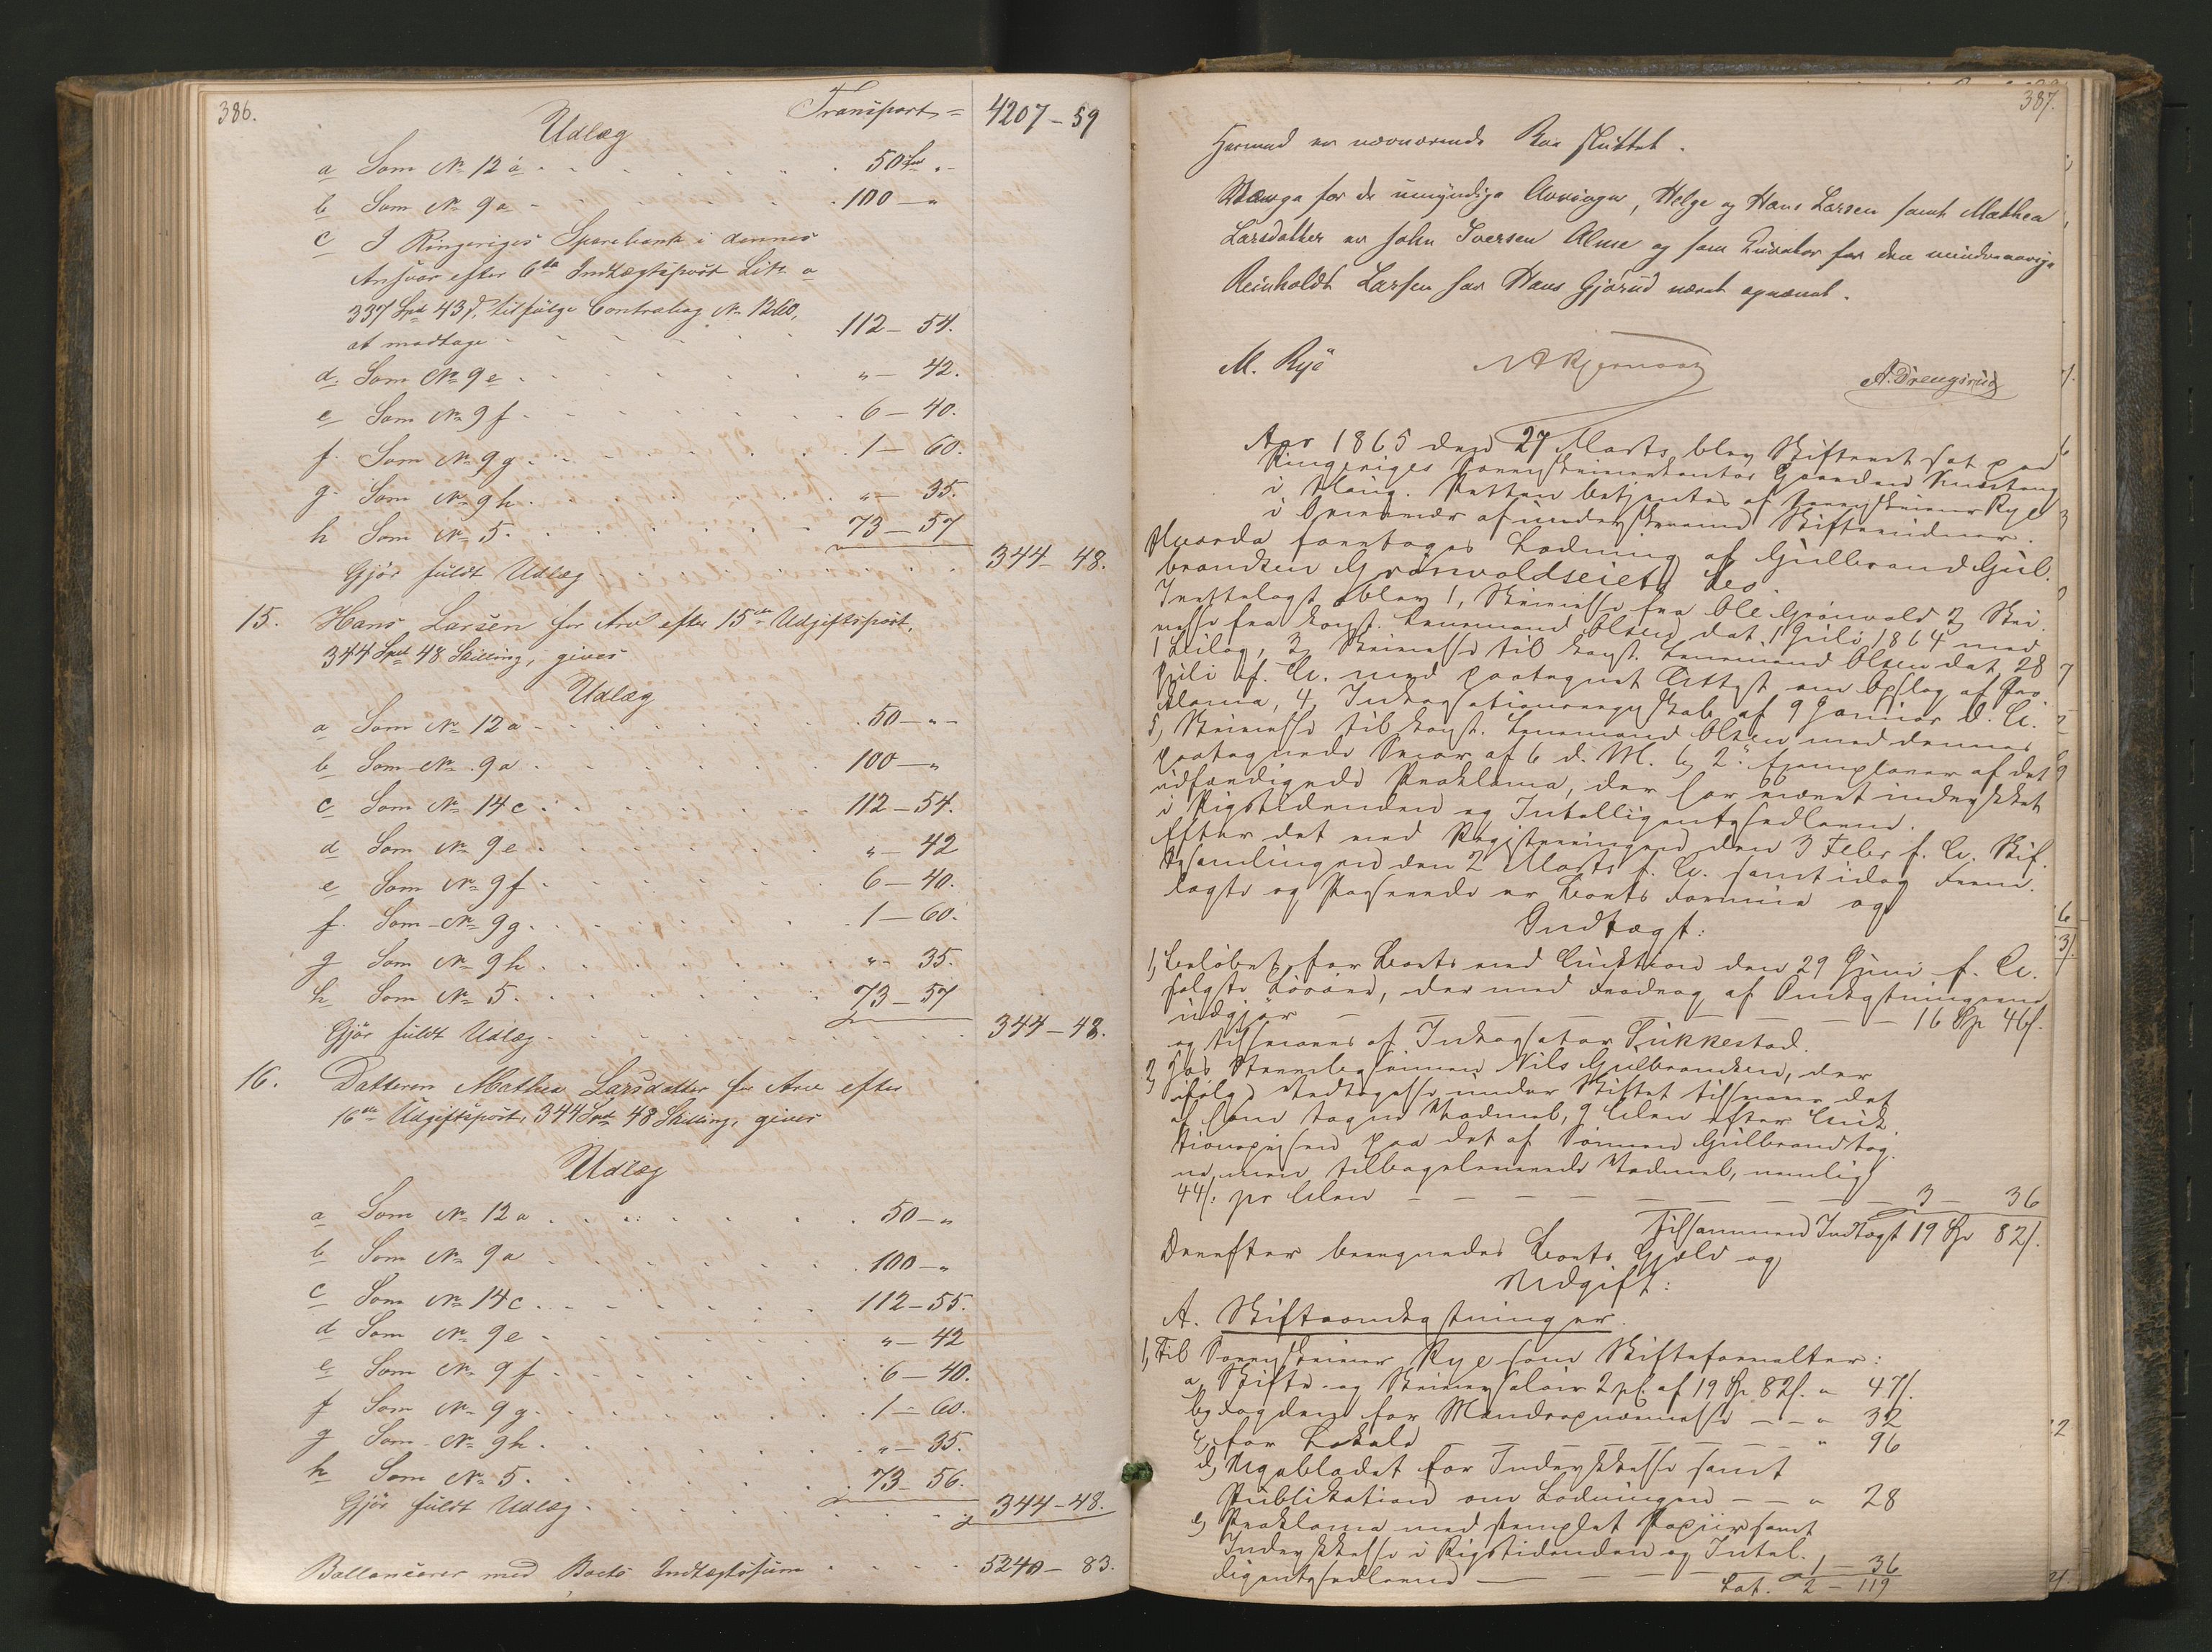 386.
Udlæg Transport = 4207 – 59
a Som No 12 a . . . 50 Spd „ -
b Som No 9 a - 100 – „
c I Ringeriges Sparebank i dennes
Ansvar efter 6te Indtægtspost Litr a
337 Spd 43 s, tilfølge Contrabog No 1260,
at modtage 112 – 54.
d. Som No 9 e . . „ – 42.
e Som No 9 f . . 6 – 40.
f. Som No 9 g . . 1 – 60.
g. Som No 9 h . . „ – 35.
h Som No 5. . . 73 – 57
Gjør fuldt Udlæg . . 344 – 48.
15. Hans Larsen for Arv efter 15de Udgiftspost,
344 Spd 48 Skilling, gives
Udlæg
a Som No 12 a - 50 – „ -
b Som No 9 a . . 100 – „
c Som No 14 c . . 112 – 54.
d Som No 9 e . . „ – 42
e Som No 9 f . . 6 – 40.
f. Som No 9 g . . 1 – 60.
g Som No 9 h . . „ - 35.
h Som No 5. . . 73 – 57
Gjør fuldt Udlæg . . 344 – 48.
16. Datteren Mathea Larsdatter for Arv efter
16de Udgiftspost, 344 Spd 48 Skilling, gives
Udlæg
a Som No 12 a . . 50 – „
b Som No 9 a . . 100 – „
c Som No 14 c . . 112 – 55.
d Som No 9 e - „ – 42
e Som No 9 f . . 6 – 40.
f Som No 9 g . . 1 – 60.
g Som No 9 h . . „ – 35.
h Som No 5. . . 73 – 56.
Gjør fuldt Udlæg . . 344 – 48.
Ballancerer med Boets Indtægtssum . . 5240 – 83.
387.
Hermed er nærværende Boe sluttet.
Værge for de umyndige Arvinger, Helge og Hans Larsen samt Mathea
Larsdatter er John Iversen Alme og som Curator for den mindreaarige
Reinholdt Larsen har Hans Gjørud været opnævnt.
M. Rye A. Drengsrud
Aar 1865 den 27 Marts blev Skifteret sat paa
Ringeriges Sorenskriverkontor Gaarden
i Houg. Retten betjentes af Sorenskriver Rye
i Overvær af undertegnede Skiftevidner.
Hvorda foretoges Lodning af Gulbrand Gul-
brandsen Grønvoldseiets Bo
Fremlagt blev 1, Skrivelse fra Ole Grønvold 2, Skri-
velse fra const. Lensmand Olsen dat. 1 Juli 1864 med
1 Bilag, 3, Skrivelse til const. Lensmand Olsen dat. 28
Juli f. A. med paategnet Attest om Opslag af Pro-
klama, 4, Inkassationsregnskab af 9 Januar d. A.
5, Skrivelse til const. Lensmand Olsen med dennes
paategnede Svar af 6 d. M. 6, 2de Exemplarer af det
udfærdigede Proklama, der har været indrykket
i Rigstidenden og Intelligentssedlerne.
Efter det ved Registreringen den 3 Febr f. A. Skif-
tesamlingen den 2 Marts f. A. samt idag Frem-
lagte og Passerede er Boets Formue og
Indtægt:
1, Beløbet for Boets ved Auktion den 29 Juni f. A.
solgte Løsøre, der med Fradrag af Omkostningerne
udgjør – – – 16 Sp 46 s.
og tilsvares af Inkassator Sukkestad.
2, Hos Strømlegsønnen Nils Gulbrandsen, der
ifølge Vedtagelse under Skiftet tilsvarer det
af ham tagne Vadmel, 9 Alen efter Auk-
tionsprisen paa det af Sønnen Gulbrand tag-
ne, men tilbageleverede Vadmel, nemlig
44 s. pr Alen – – – 3 – 36
Tilsammen Indtægt 19 Sp 82 s.
Derefter beregnedes Boets Gjæld og
Udgift:
A. Skifteomkostninger.
1, Til Sorenskriver Rye som Skifteforvalter:
a, Skifte- og Skriversalair 2 pC. af 19 Sp 82 s. „ 47 s.
b, Fogden for Mændsopnævnelse – – „ 32
c, for Lokale – – – „ 96
d, Ugebladet for Indrykkelse samt
Publikation om Lodningen – – „ 28
e, Proklama med stemplet Papiir samt
Indrykkelse i Rigstidenden og Intel-
ligentssedlerne – – – 1 – 36
Lat. 2 – 119